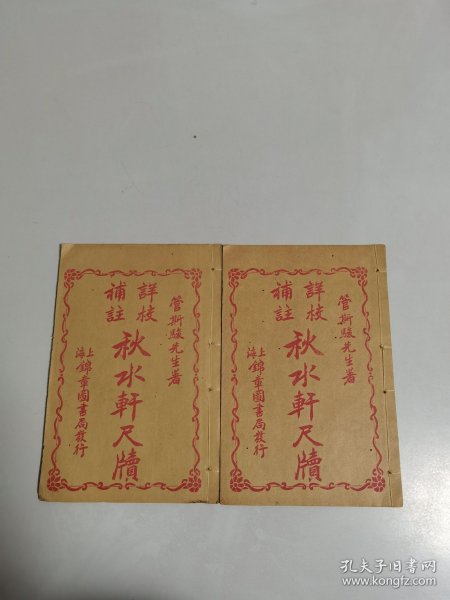 管斯駿先生著
詳校
補註
秋水軒尺牘
上海
錦章圖書局發行
管斯駿先生著
詳校
補註
秋水軒尺牘
上海
錦章圖書局發行
孔夫子旧书网
www.kongfz.com